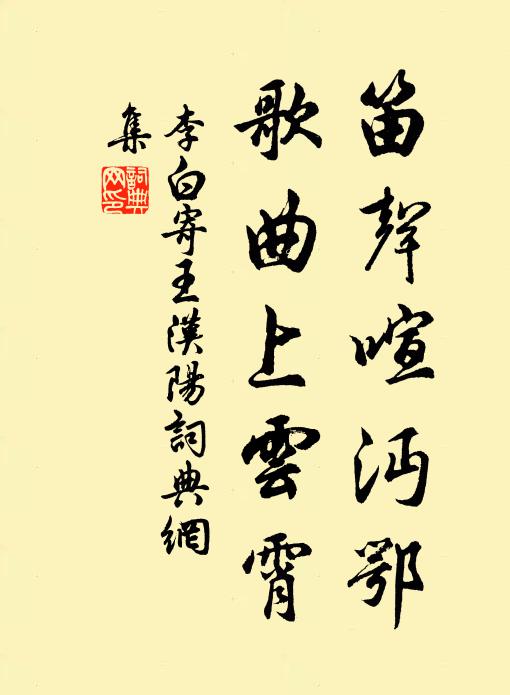 笛聲喧沔鄂
歌曲上雲霄
李白寄王漢陽詞典網
集
詞典
网印